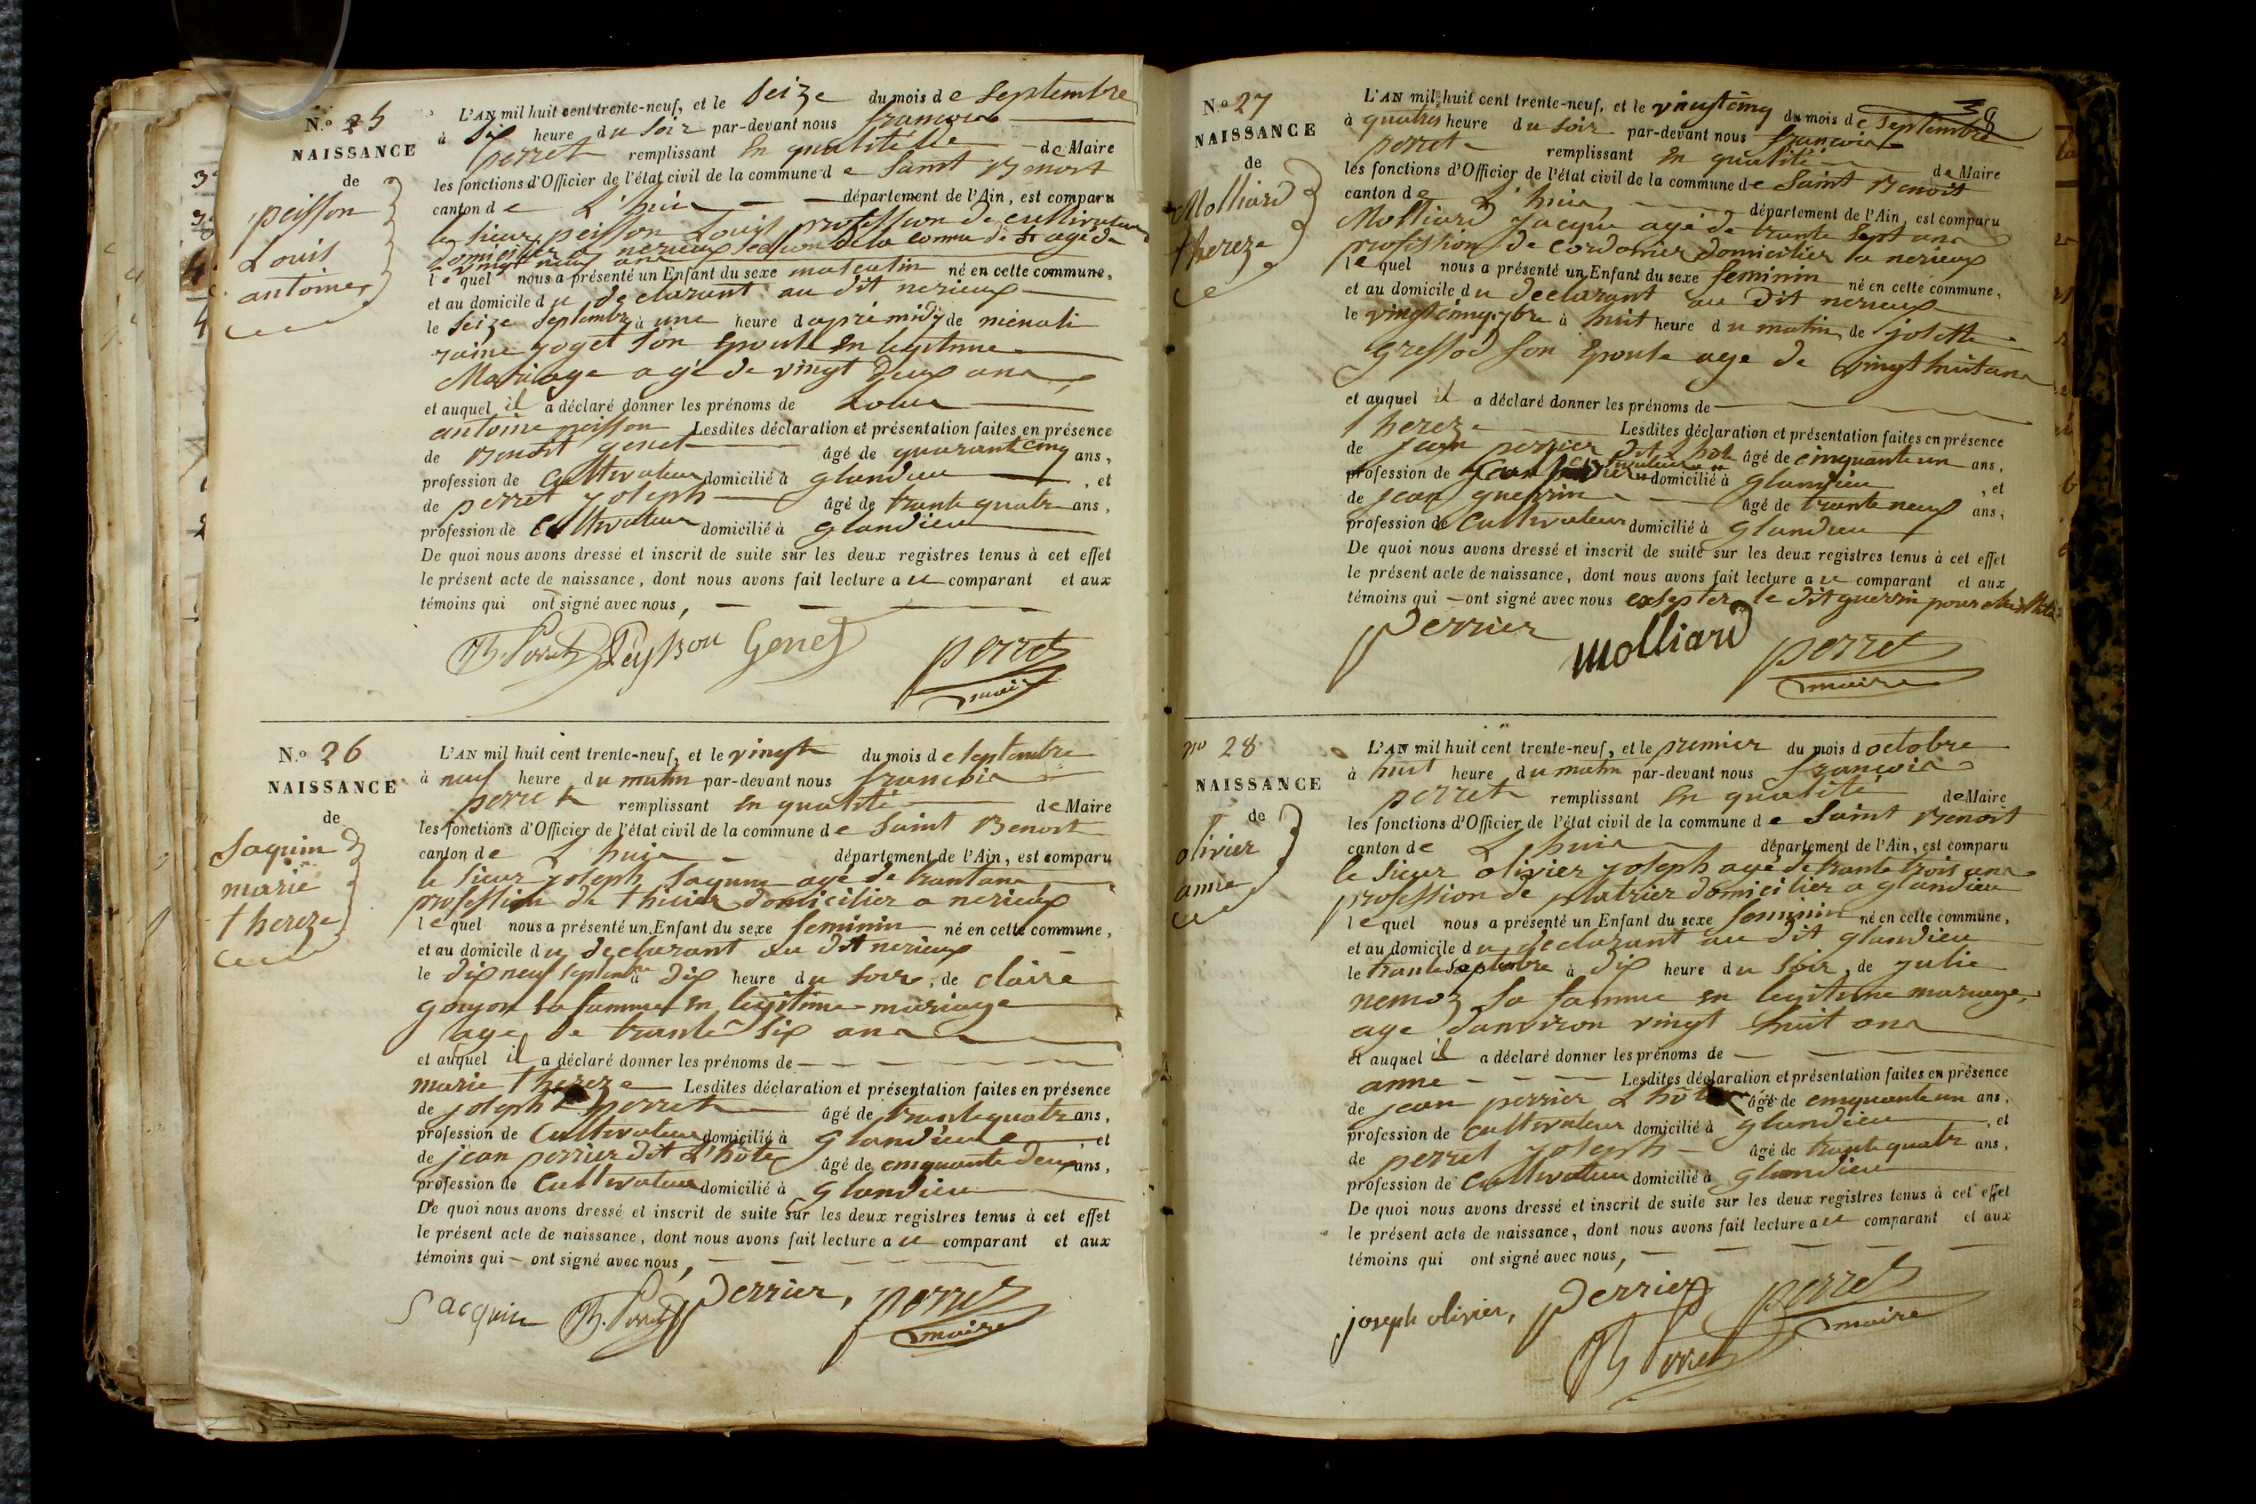 N.o 25
NAISSANCE
de
peisson
Louis
antoine
L'AN mil huit cent trente-neuf, et le seize du mois de septembre
à six heure du soir par-devant nous françois
perret remplissant en qualité de Maire
les fonctions d'Officier de l'état civil de la commune de Saint Benoit
canton de L'huis département de l'Ain, est comparu
le sieur peisson Louis profession de cultivateur
domicilier a nerieux section de la comune de St agé de
vingt neuf ans
lequel nous a présenté un Enfant du sexe masculin né en cette commune,
et au domicile du declarant au dit nerieux
le seize septembre à une heure daprè midy de
joget son epouse en legitime
Mariage agé de vingt deux ans
et auquel il a déclaré donner les prénoms de Louis
antoine peisson Lesdites déclaration et présentation faites en présence
de Benoit genet âgé de quarante cinq ans,
profession de cultivateur domicilié à glandieu, et
de perret joseph âgé de trante quatre ans,
profession de cultivateur domicilié à glandieu
De quoi nous avons dressé et inscrit de suite sur les deux registres tenus à cet effet
le présent acte de naissance, dont nous avons fait lecture au comparant et aux
témoins qui ont signé avec nous,
Peysson Genet perret
maire
N.o 26
NAISSANCE
de
Saquin
marie
thereze
L'AN mil huit cent trente-neuf, et le vingt du mois de septembre
à neuf heure du matin par-devant nous françois
perret remplissant en qualité de Maire
les fonctions d'Officier de l'état civil de la commune de Saint Benoit
canton de L'huis département de l'Ain, est comparu
le sieur joseph Saquin agé de trantans
profession de domicilier a nerieux
lequel nous a présenté un Enfant du sexe feminin né en cette commune,
et au domicile du declarant au dit nerieux
le dix neuf septembre à dix heure du soir, de claire
goujon sa famme en legitime mariage
age de trante six ans
et auquel il a déclaré donner les prénoms de
marie thereze Lesdites déclaration et présentation faites en présence
de joseph perret âgé de trante quatre ans,
profession de cultivateur domicilié à glandieu, et
de jean perrier dit L'hôte âgé de cinquante deux ans,
profession de cultivateur domicilié à glandieu
De quoi nous avons dressé et inscrit de suite sur les deux registres tenus à cet effet
le présent acte de naissance, dont nous avons fait lecture au comparant et aux
témoins qui ont signé avec nous,
Sacquin perrier, perret
maire
38
N.o 27
NAISSANCE
de
Molliard
thereze
L'AN mil huit cent trente-neuf, et le vingt cinq du mois de septembre
à quatres heure du soir par-devant nous françois
perret remplissant en qualité de Maire
les fonctions d'Officier de l'état civil de la commune de Saint Benoit
canton de L'huis département de l'Ain, est comparu
Molliard Jacque agé de trante sept ans
profession de cordonier domicilier a nerieux
lequel nous a présenté un Enfant du sexe feminin né en cette commune,
et au domicile du declarant au dit nerieux
le vingt cinq 7bre à huit heure du matin, de josette
gressod son epouse age de vingt huit ans
et auquel il a déclaré donner les prénoms de
thereze Lesdites déclaration et présentation faites en présence
de jean perrier dit L'hôte âgé de cinquante un ans,
profession de cultivateur domicilié à glandieu, et
de jean guerrin âgé de trante neuf ans,
profession de cultivateur domicilié à glandieu
De quoi nous avons dressé et inscrit de suite sur les deux registres tenus à cet effet
le présent acte de naissance, dont nous avons fait lecture au comparant et aux
témoins qui ont signé avec nous exsepter le dit guerrin pour
perrier Molliard perret
maire
No 28
NAISSANCE
de
olivier
anne
L'AN mil huit cent trente-neuf, et le premier du mois d octobre
à huit heure du matin par-devant nous françois
perret remplissant en qualité de Maire
les fonctions d'Officier de l'état civil de la commune de Saint Benoit
canton de L'huis département de l'Ain, est comparu
le sieur olivier joseph agé de trante trois ans
profession de platrier domicilier a glandieu
lequel nous a présenté un Enfant du sexe feminin né en cette commune,
et au domicile du declarant au dit glandieu
le trante septebre à dix heure du soir, de julie
nemoz sa famme en legitime mariage,
age danviron vingt huit ans
et auquel il a déclaré donner les prénoms de
anne Lesdites déclaration et présentation faites en présence
de jean perrier L'hôte âgé de cinquante un ans,
profession de cultivateur domicilié à glandieu, et
de perret joseph âgé de trante quatre ans,
profession de cultivateur domicilié à glandieu
De quoi nous avons dressé et inscrit de suite sur les deux registres tenus à cet effet
le présent acte de naissance, dont nous avons fait lecture au comparant et aux
témoins qui ont signé avec nous,
joseph olivier, perrier perret
maire